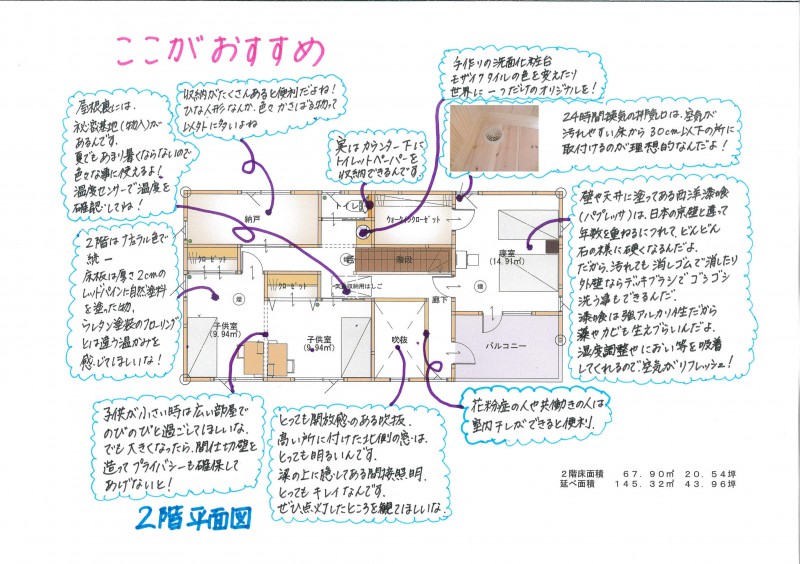 ここがおすすめ
屋根裏には、
秘密基地(物入)が
あるんです。
夏でもあまり暑くならないので
色々な事に使えるよ!
温度センサーで温度を
確認してね!
収納がたくさんあると便利だよね!
ひな人形なんか、色々かさばる物って
以外に多いよね
実はカウンター下に
トイレットペーパーを
収納できるんです
手作りの洗面化粧台
モザイクタイルの色を変えたり
世界に一つだけのオリジナルを!
24時間換気の排気口は、空気が
汚れやすい床から30cm以下の所に
取付けるのが理想的なんだよ!
2階はナチュラル色で
統一
床板は厚さ2cmの
レッドパインに自然塗料
を塗った物、
ウレタン塗装のフローリング
とは違う温かみを
感じてほしいな!
壁や天井に塗ってある西洋漆喰
(パプレッサ)は、日本の京壁と違って
年数を重ねるにつれて、どんどん
石の様に硬くなるんだよ。
だから、汚れても消しゴムで消したり
外壁ならデッキブラシでゴシゴシ
洗う事もできるんだ。
漆喰は強アルカリ性だから
藻やカビも生えづらいんだよ。
湿度調整やにおい等を吸着
してくれるので空気がリフレッシュ!
納戸
トイレ
ウォークインクローゼット
クローゼット
クローゼット
階段
寝室
(14.91㎡)
廊下
子供室
(9.94㎡)
子供室
(9.94㎡)
吹抜
バルコニー
子供が小さい時は広い部屋で
のびのびと過ごしてほしいな。
でも大きくなったら、間仕切壁を
造ってプライバシーも確保して
あげないと!
とっても開放感のある吹抜。
高い所に付けた北側の窓は、
とっても明るいんです。
梁の上に隠してある間接照明。
とってもキレイなんです。
ぜひ点灯したところを観てほしいな。
花粉症の人や共働きの人は
室内干しができると便利。
2階床面積 67.90㎡ 20.54坪
延べ面積 145.32㎡ 43.96坪
2階平面図